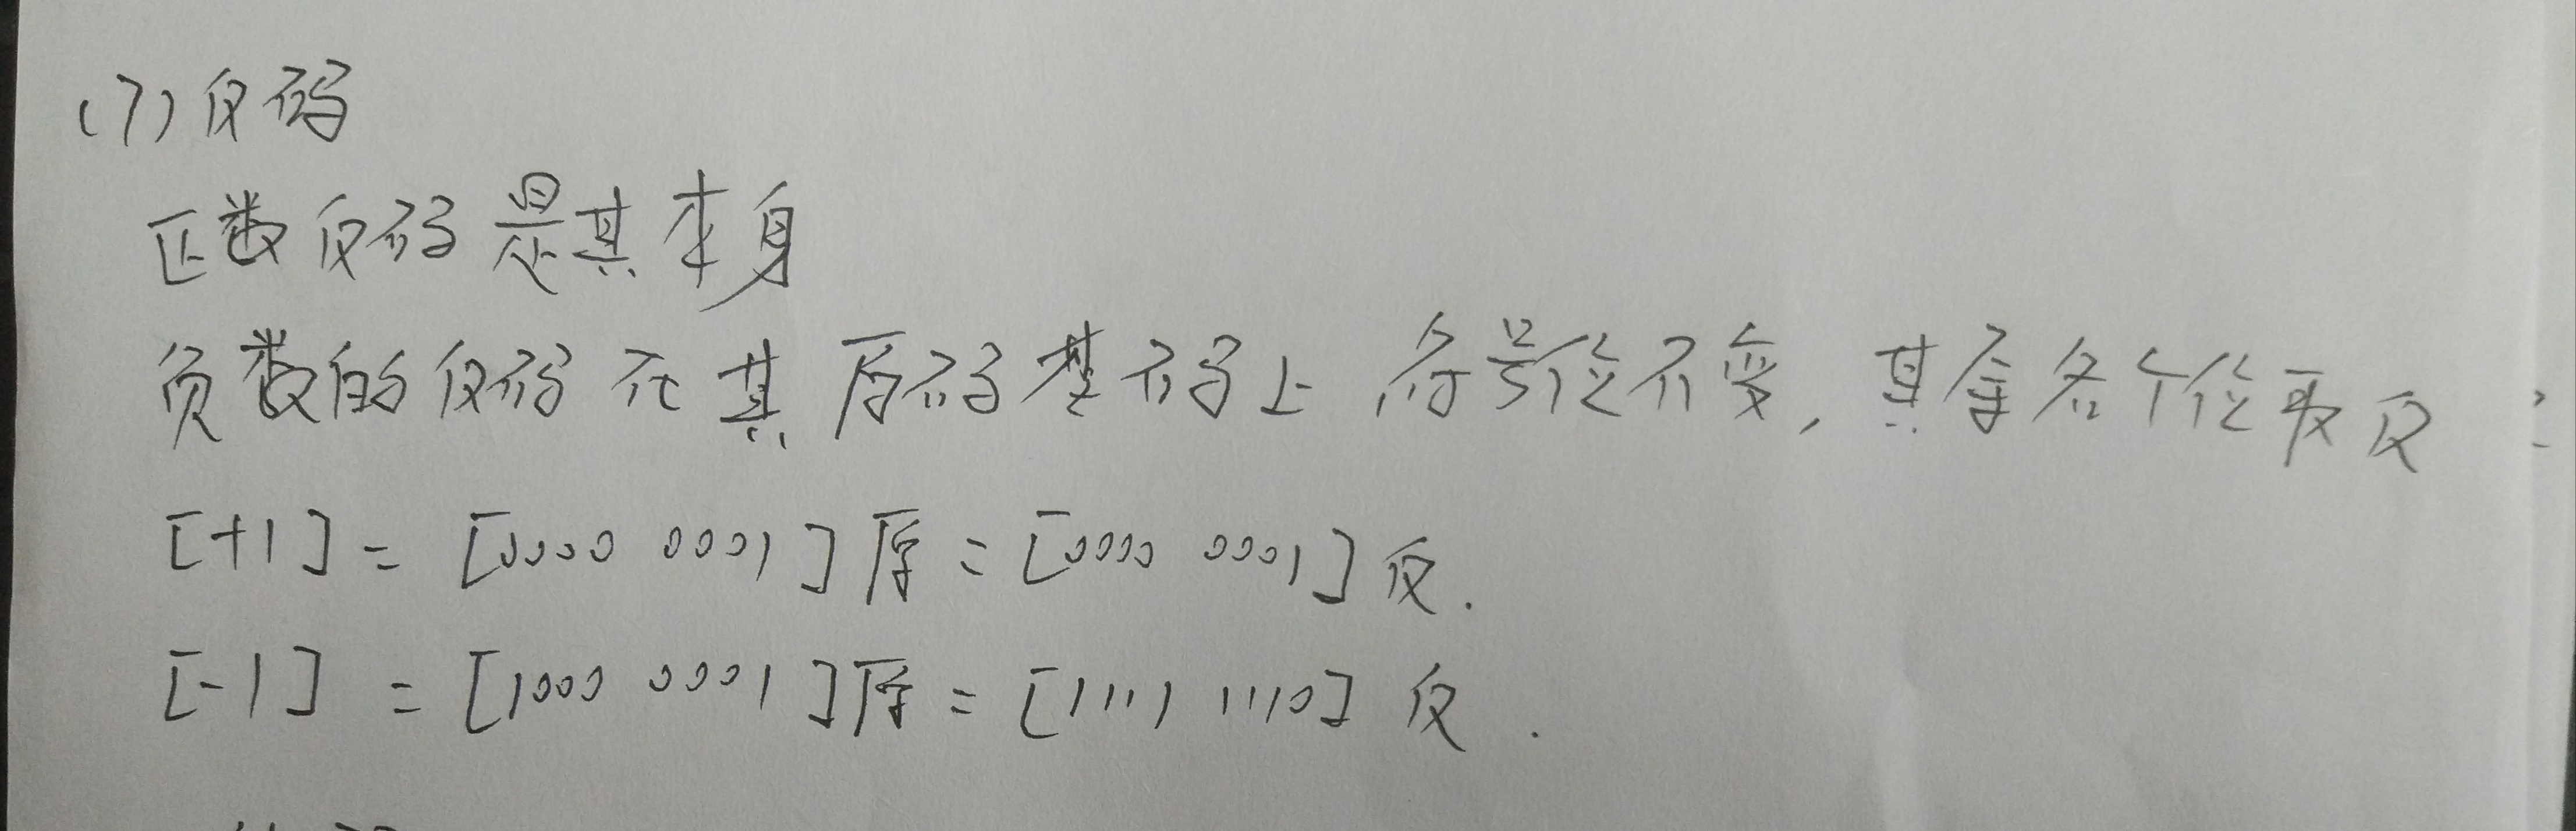 (7) 反码
正数反码是其本身
负数的反码在其原码基码上符号位不变,其余各个位取反:
[+1] = [0000 0001]原 = [0000 0001]反.
[-1] = [1000 0001]原 = [1111 1110]反.